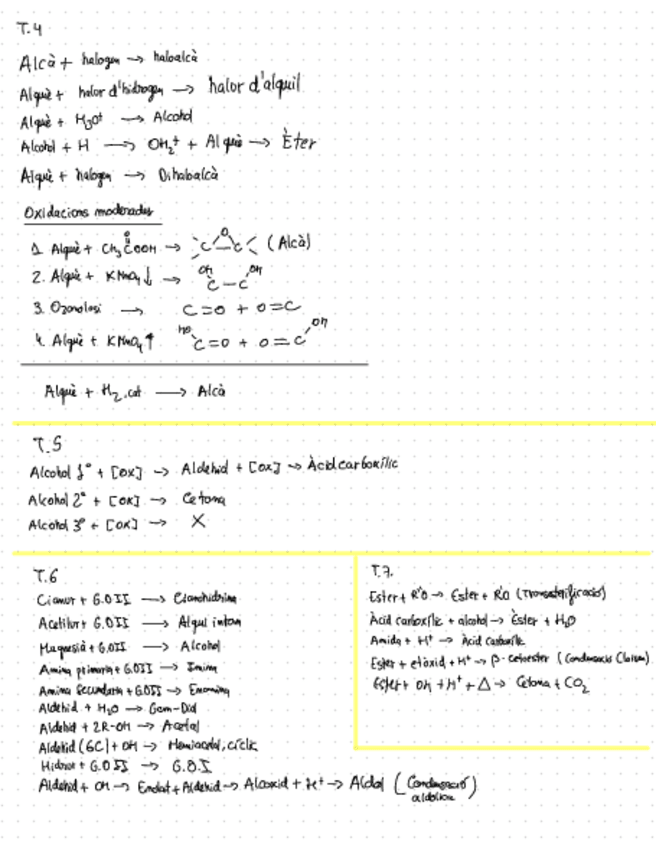 T.4
Alcà + halogen → haloalcà
Alquè + halor d'hidrogen → halor d'alquil
Alquè + H3O+ → Alcohol
Alcohol + H → OH2+ + Alquè → Èter
Alquè + halogen → Dihaloalcà
Oxidacions moderades
1. Alquè + CH3COOH → C O C (Alcà)
2. Alquè + KMnO4 ↓ → OH C – C OH
3. Ozonolosi → C=O + O=C
4. Alquè + KMnO4 ↑ HO C=O + O=C OH
Alquè + H2, cat → Alcà
T.5
Alcohol 1º + [OX] → Aldehid + [OX] → Àcid carboxílic
Alcohol 2º + [OX] → Cetona
Alcohol 3º + [OX] → X
T.6
Cianur + G.O II → Cianohidrina
Acetilur + G.O II → Alquí intern
Magnesià + G.O II → Alcohol
Amina primaria + G.O II → Imina
Amina Secundaria + G.O II → Enamina
Aldehid + H2O → Gem-Diol
Aldehid + 2R-OH → Acetal
Aldehid (6C) + OH → Hemiacetal, cíclic
Hidrur + G.O II → G.O.I
Aldehid + OH → Enolat + Aldehid → Alcoxid + H+ → Aldol (Condensació aldòlica)
T.7.
Ester + R'O → Ester + R'O (Transesterificació)
Àcid carboxílic + alcohol → Èster + H2O
Amida + H+ → Àcid Carboxílic
Ester + etòxid + H+ → β-cetoester (Condensació Claisen)
Ester + OH + H+ + Δ → Cetona + CO2